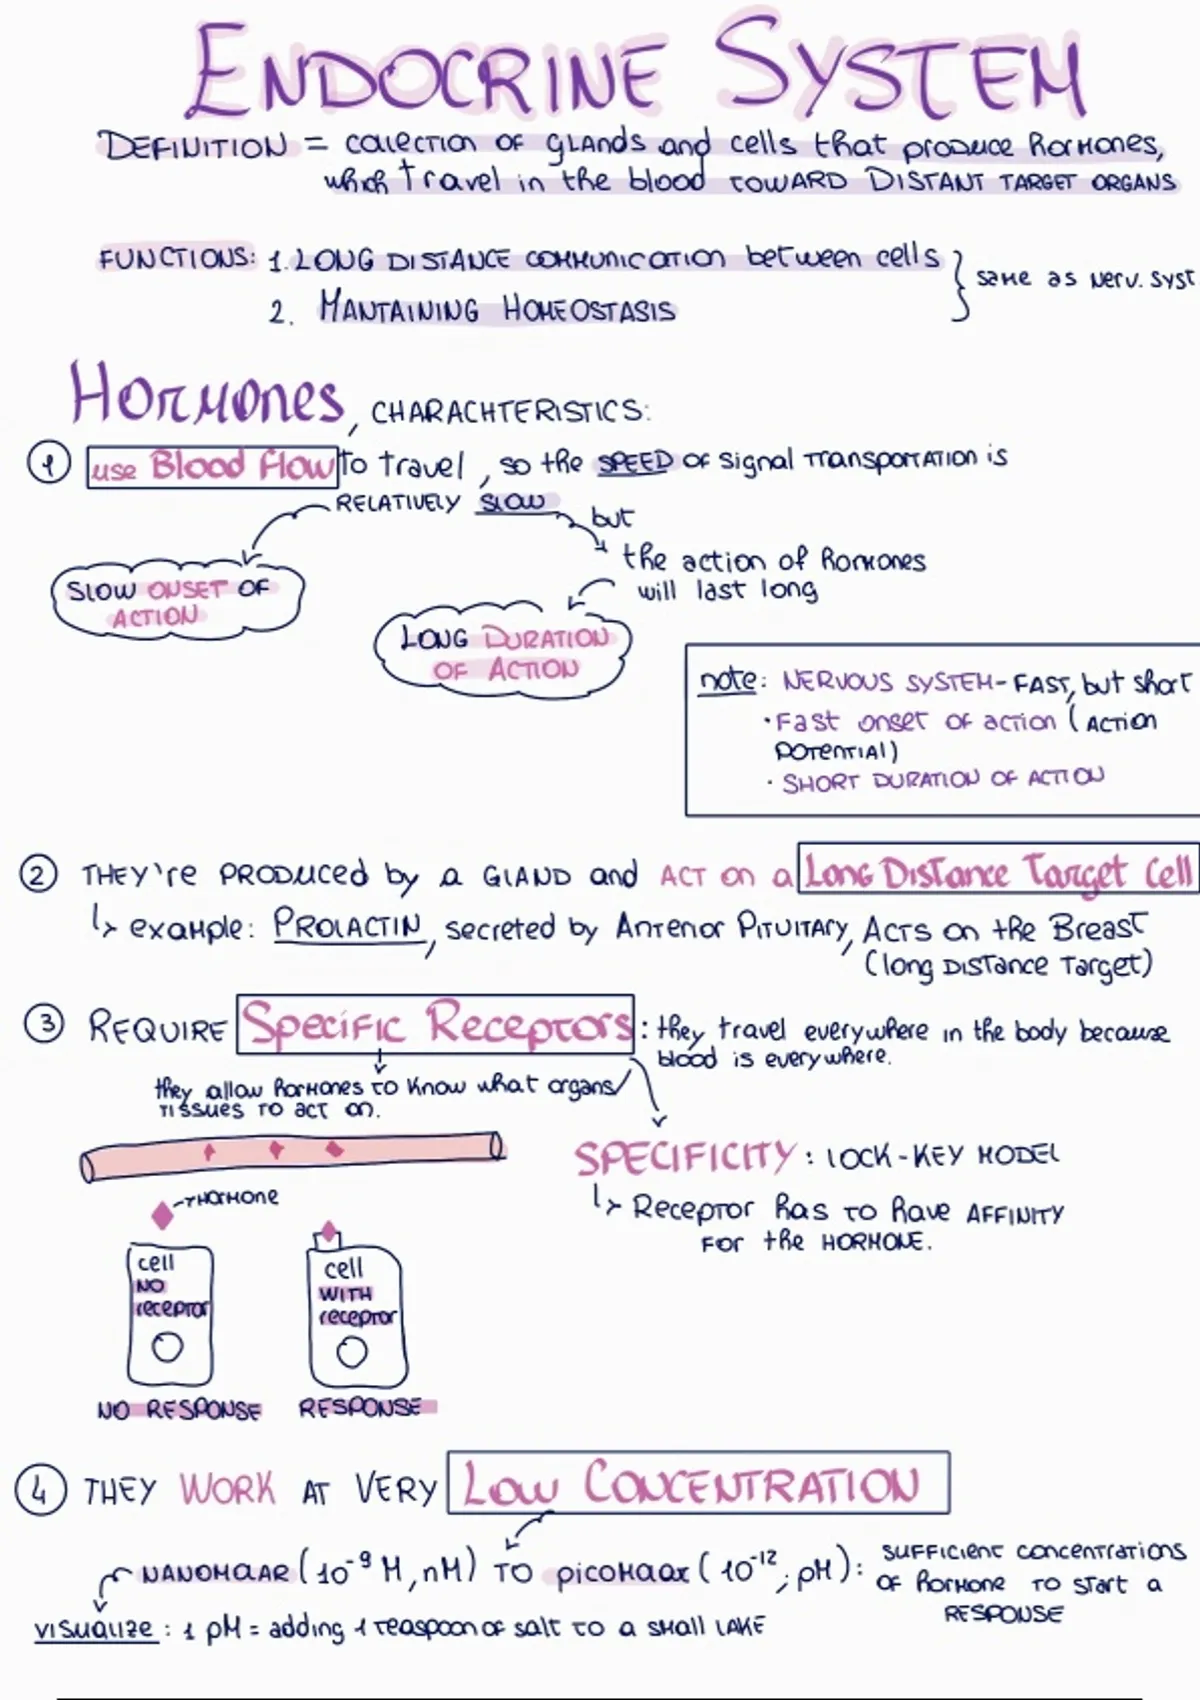 ENDOCRINE SYSTEM
DEFINITION = collection of glands and cells that produce hormones,
which travel in the blood toward distant target organs
FUNCTIONS: 1. LONG DISTANCE COMMUNICATION between cells
2. MANTAINING HOMEOSTASIS
same as nerv. syst
Hormones, CHARACHTERISTICS:
1 use Blood flow to travel, so the SPEED of signal transportation is
RELATIVELY SLOW
but
the action of hormones
will last long
SLOW ONSET OF
ACTION
LONG DURATION
OF ACTION
note: NERVOUS SYSTEM - FAST, but short
• Fast onset of action (ACTION
POTENTIAL)
• SHORT DURATION OF ACTION
2 THEY're PRODUCED by a GLAND and ACT on a Long Distance Target Cell
↳ example: PROLACTIN, secreted by Anterior PITUITARY, ACTS on the Breast
(long Distance Target)
3 REQUIRE Specific Receptors: they travel everywhere in the body because
blood is everywhere.
they allow hormones to know what organs/
tissues to act on.
SPECIFICITY: LOCK-KEY MODEL
↳ Receptor has to have AFFINITY
FOR the HORMONE.
→ Hormone
cell
NO
receptor
cell
WITH
receptor
NO RESPONSE
RESPONSE
4 THEY WORK AT VERY Low CONCENTRATION
NANOMOLAR (10⁻⁹ M, nM) TO picomolar (10⁻¹², pM):
SUFFICIENT concentrations
of hormone to start a
RESPONSE
VISUALIZE: 1 pM = adding 1 teaspoon of salt to a small LAKE